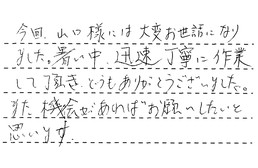 今回、山口様には大変お世話になり
ました。暑い中、迅速丁寧に作業
して頂き、どうもありがとうございました。
また機会があればお願いしたいと
思います。